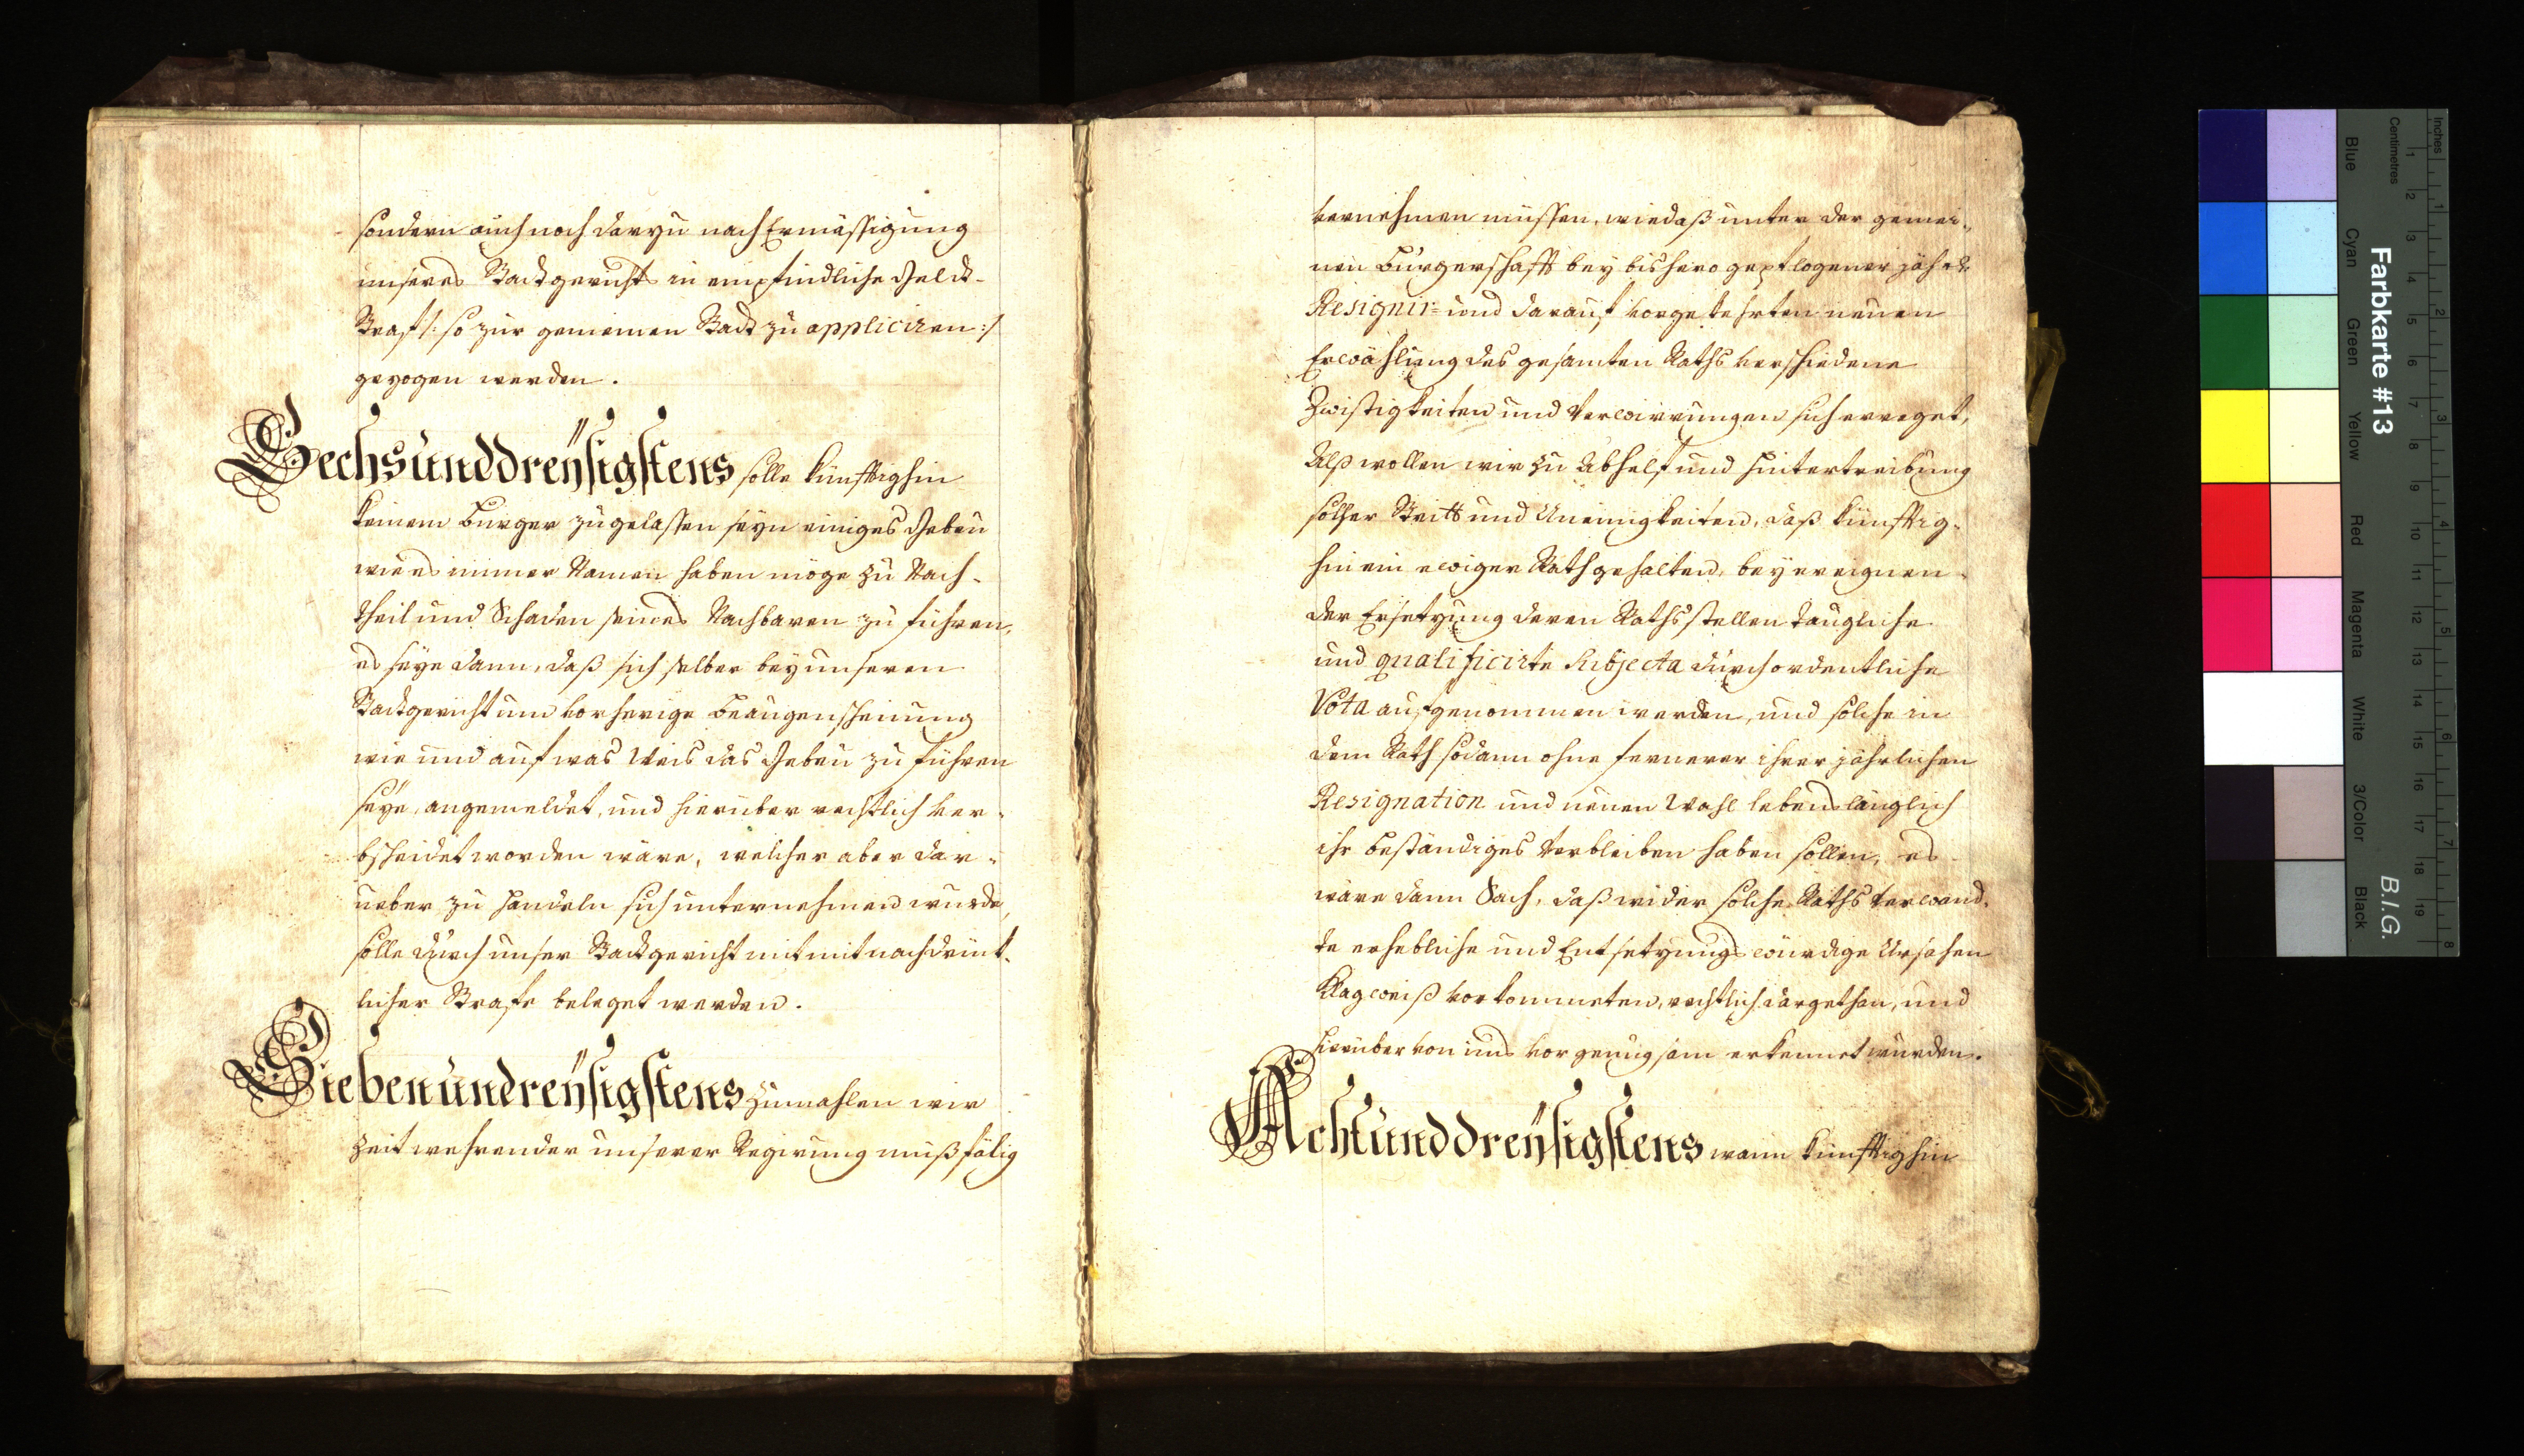 sondern auch noch darzu nach Ermässigung
unseres Stadtgerichts in empfindliche Geldt-
Straf /: so zur gemeinen Stadt zu appliciren :/
gezogen werden.
Sechsünddreÿsigstens solle künfftighin
keinem Burger zugelassen seyn einiges Gebeu
wie es immer Namen haben möge zu Nach-
theil und Schaden seines Nachbaren zu führen,
es seye dann, daß sich selber bey unserem
Stadtgericht um vorherige Beaugenscheinung
wie und auf was Weis das Gebeu zu führen
seye, angemeldet, und hierüber rechtlich ver-
bscheidet worden wäre, welcher aber dar-
ueber zu handeln sich unternehmen wurde,
solle durch unser Stadtgericht mit mit nachdrük-
licher Strafe beleget werden.
Siebenündreÿsigstens Zumahlen wir
Zeit wehrender unserer Regirung mißfälig
vernehmen müssen, wie daß unter der gemei-
nen Burgerschafft bey bishero gepflogener jährl.
Resignir= und darauf vorgekehrten neuen
Erwählung des gesamten Raths verschiedene
Zwistigkeiten und Verwirrungen sich erreget,
Alß wollen wir zu Abhelf und Hintertreibung
solcher Stritt und Uneinigkeiten, daß künfftig-
hin ein ewiger Rath gehalten, bey ereignen-
der Ersetzung deren Rathsstellen taugliche
und qualificirte Subjecta durch ordentliche
Vota aufgenommen werden, und solche in
dem Rath sodann ohne fernerer ihrer jährlichen
Resignation und neuen Wahl lebenslänglich
ihr beständiges Verbleiben haben sollen, es
wäre dann Sach, daß wider solche Raths Verwand-
te erhebliche und Entsetzungs würdige Ursachen
Klagweiß vorkommeten, rechtlich dargethan, und
hierüber von uns vor genugsam erkennet wurden.
Achtünddreÿsigstens wann künfftighin
Farbkarte #13
B.I.G.
Inches
Centimetres
Blue
Cyan
Green
Yellow
Red
Magenta
White
3/Color
Black
1 2 3 4 5 6 7 8 9 10 11 12 13 14 15 16 17 18 19
1 2 3 4 5 6 7 8